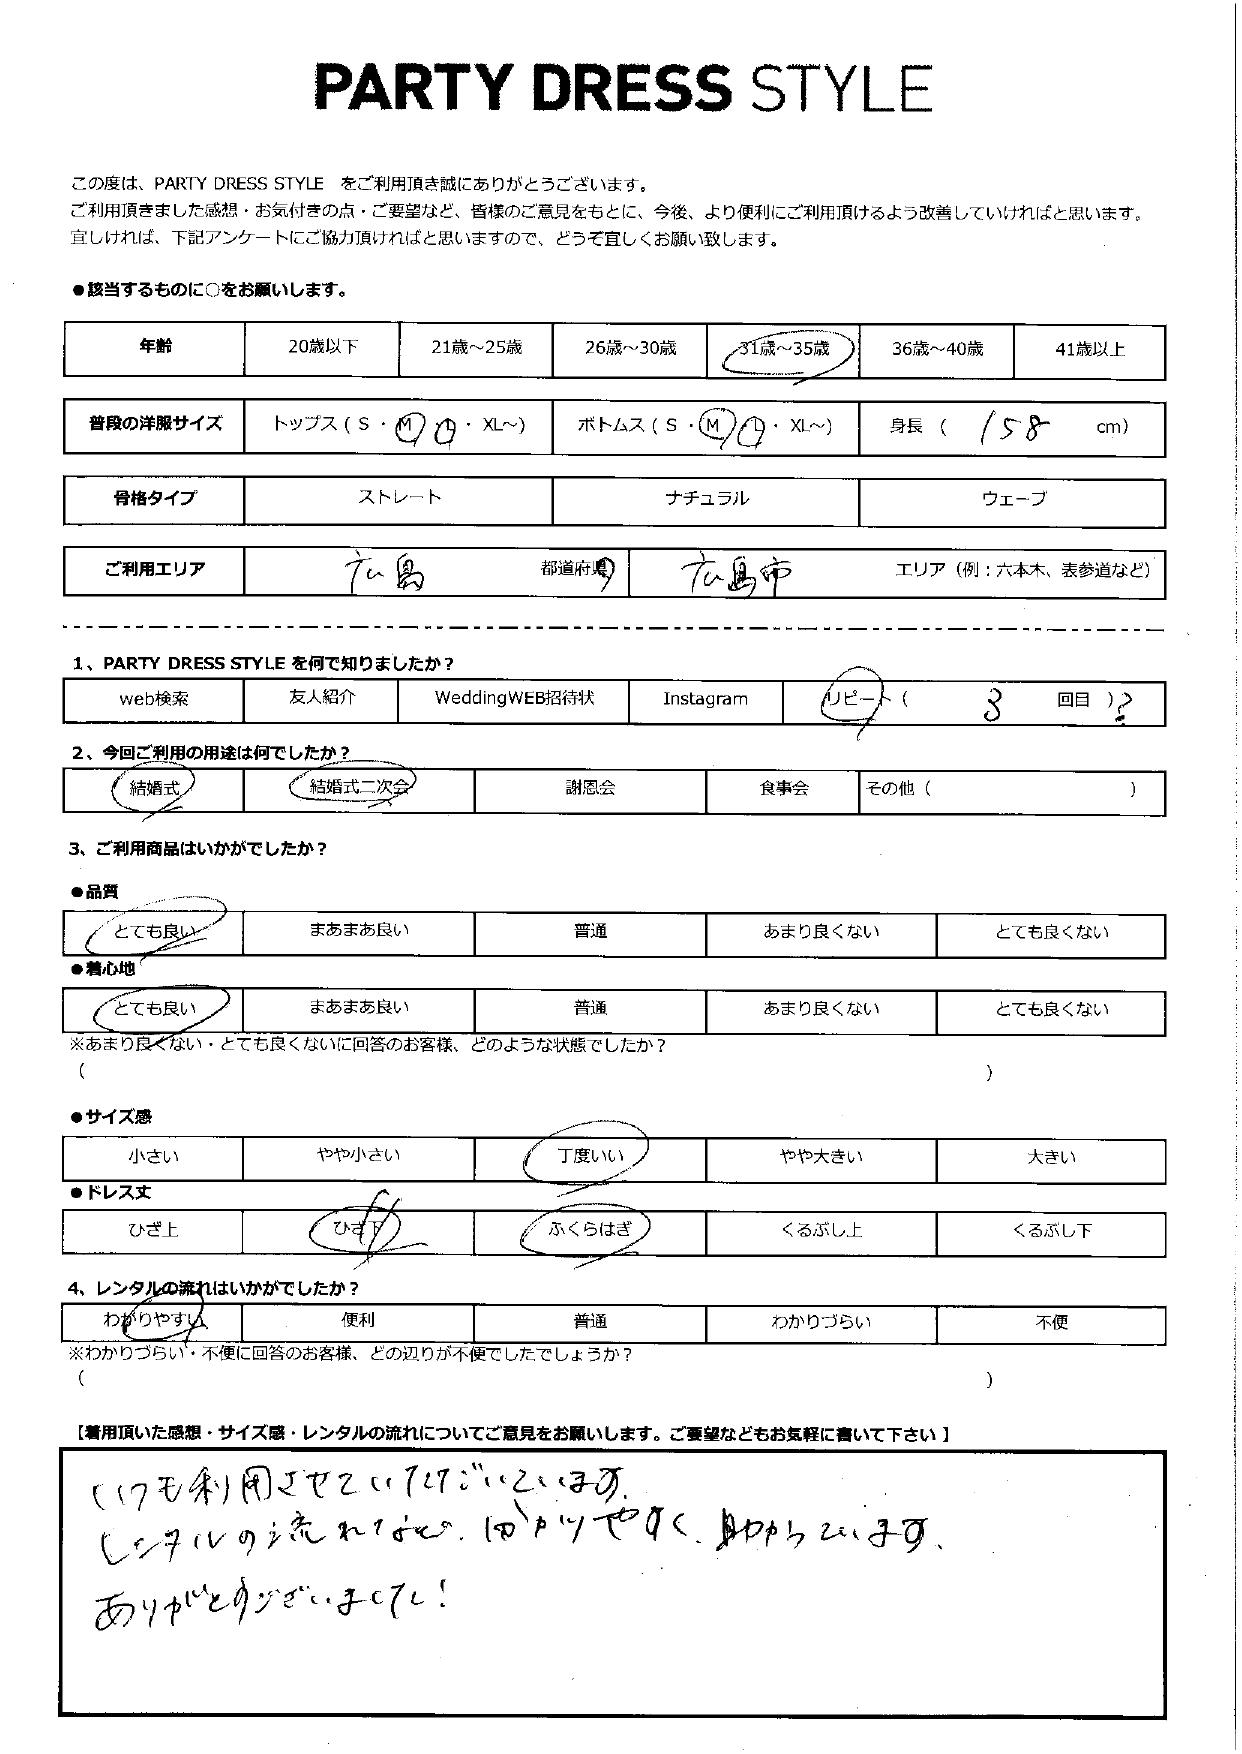 PARTY DRESS STYLE
この度は、PARTY DRESS STYLE をご利用頂き誠にありがとうございます。
ご利用頂きました感想・お気付きの点・ご要望など、皆様のご意見をもとに、今後、より便利にご利用頂けるよう改善していければと思います。
宜しければ、下記アンケートにご協力頂ければと思いますので、どうぞ宜しくお願い致します。
●該当するものに○をお願いします。
年齢 20歳以下 21歳～25歳 26歳～30歳 31歳～35歳 36歳～40歳 41歳以上
普段の洋服サイズ トップス ( S ・ M ・ L ・ XL～) ボトムス ( S ・ M ・ L ・ XL～) 身長 ( 158 cm)
骨格タイプ ストレート ナチュラル ウェーブ
ご利用エリア 広島 都道府県 広島市 エリア（例：六本木、表参道など）
1、PARTY DRESS STYLE を何で知りましたか？
web検索 友人紹介 WeddingWEB招待状 Instagram リピート ( 3 回目 ) ?
2、今回ご利用の用途は何でしたか？
結婚式 結婚式二次会 謝恩会 食事会 その他 ( )
3、ご利用商品はいかがでしたか？
●品質
とても良い まあまあ良い 普通 あまり良くない とても良くない
●着心地
とても良い まあまあ良い 普通 あまり良くない とても良くない
※あまり良くない・とても良くないに回答のお客様、どのような状態でしたか？
( )
●サイズ感
小さい やや小さい 丁度いい やや大きい 大きい
●ドレス丈
ひざ上 ひざ下 ふくらはぎ くるぶし上 くるぶし下
4、レンタルの流れはいかがでしたか？
わかりやすい 便利 普通 わかりづらい 不便
※わかりづらい・不便に回答のお客様、どの辺りが不便でしたでしょうか？
( )
【着用頂いた感想・サイズ感・レンタルの流れについてご意見をお願いします。ご要望などもお気軽に書いて下さい 】
いつも利用させていただいています。
レンタルの流れなども、分かりやすく、助かっています。
ありがとうございました！